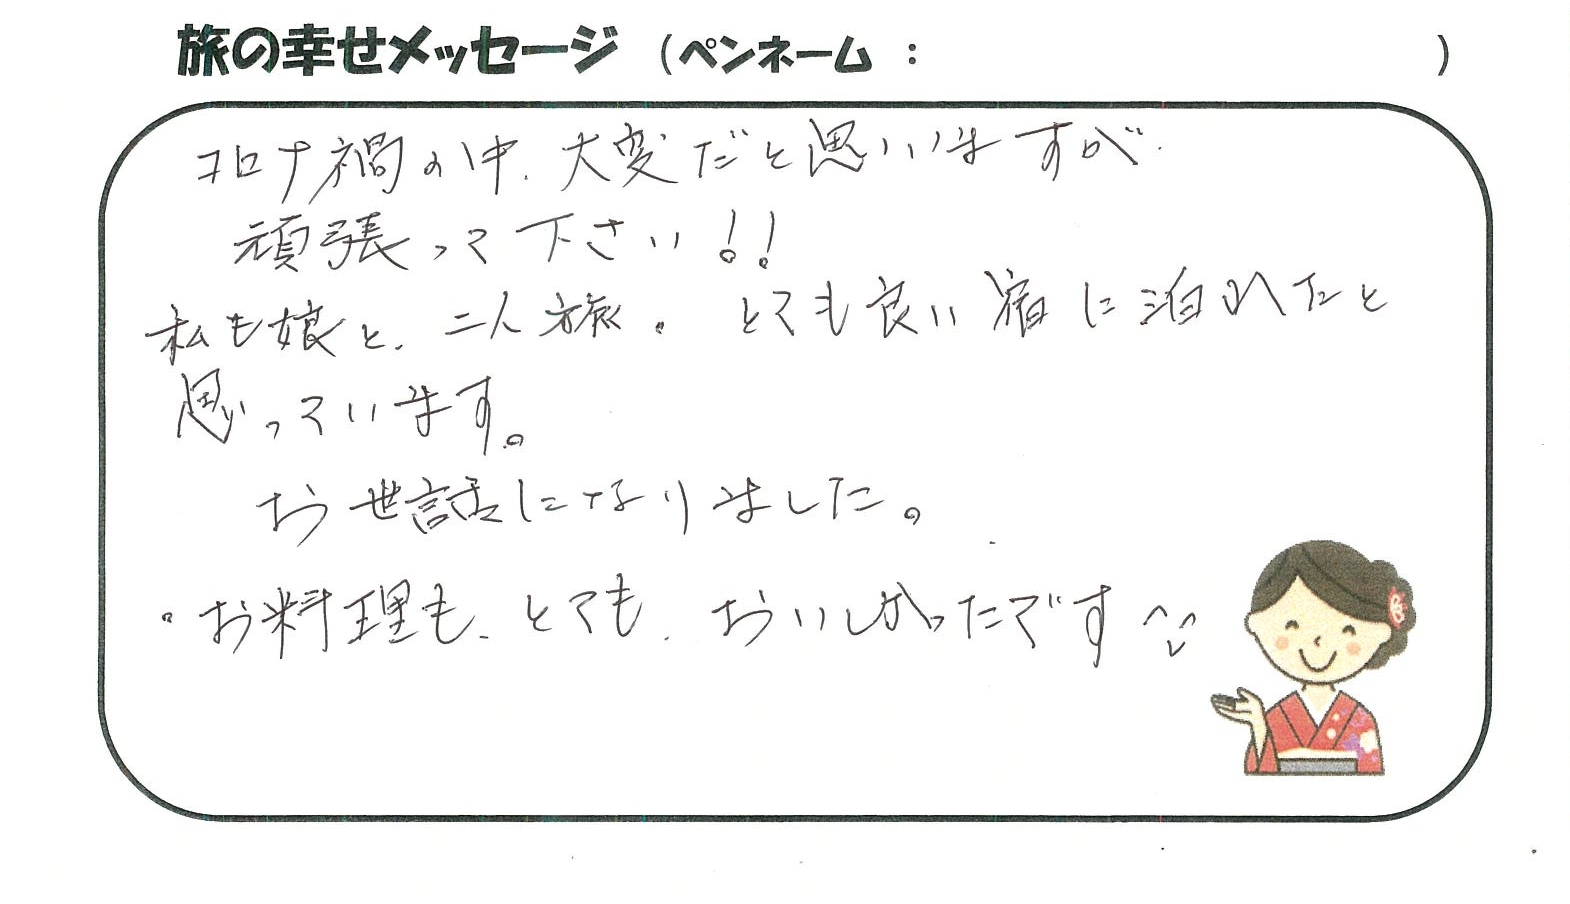 旅の幸せメッセージ（ペンネーム：　　　）
コロナ禍の中、大変だと思いますが
頑張って下さい！！
私も娘と、二人旅。とても良い宿に泊れたと
思っています。
お世話になりました。
・お料理も、とても、おいしかったです^^